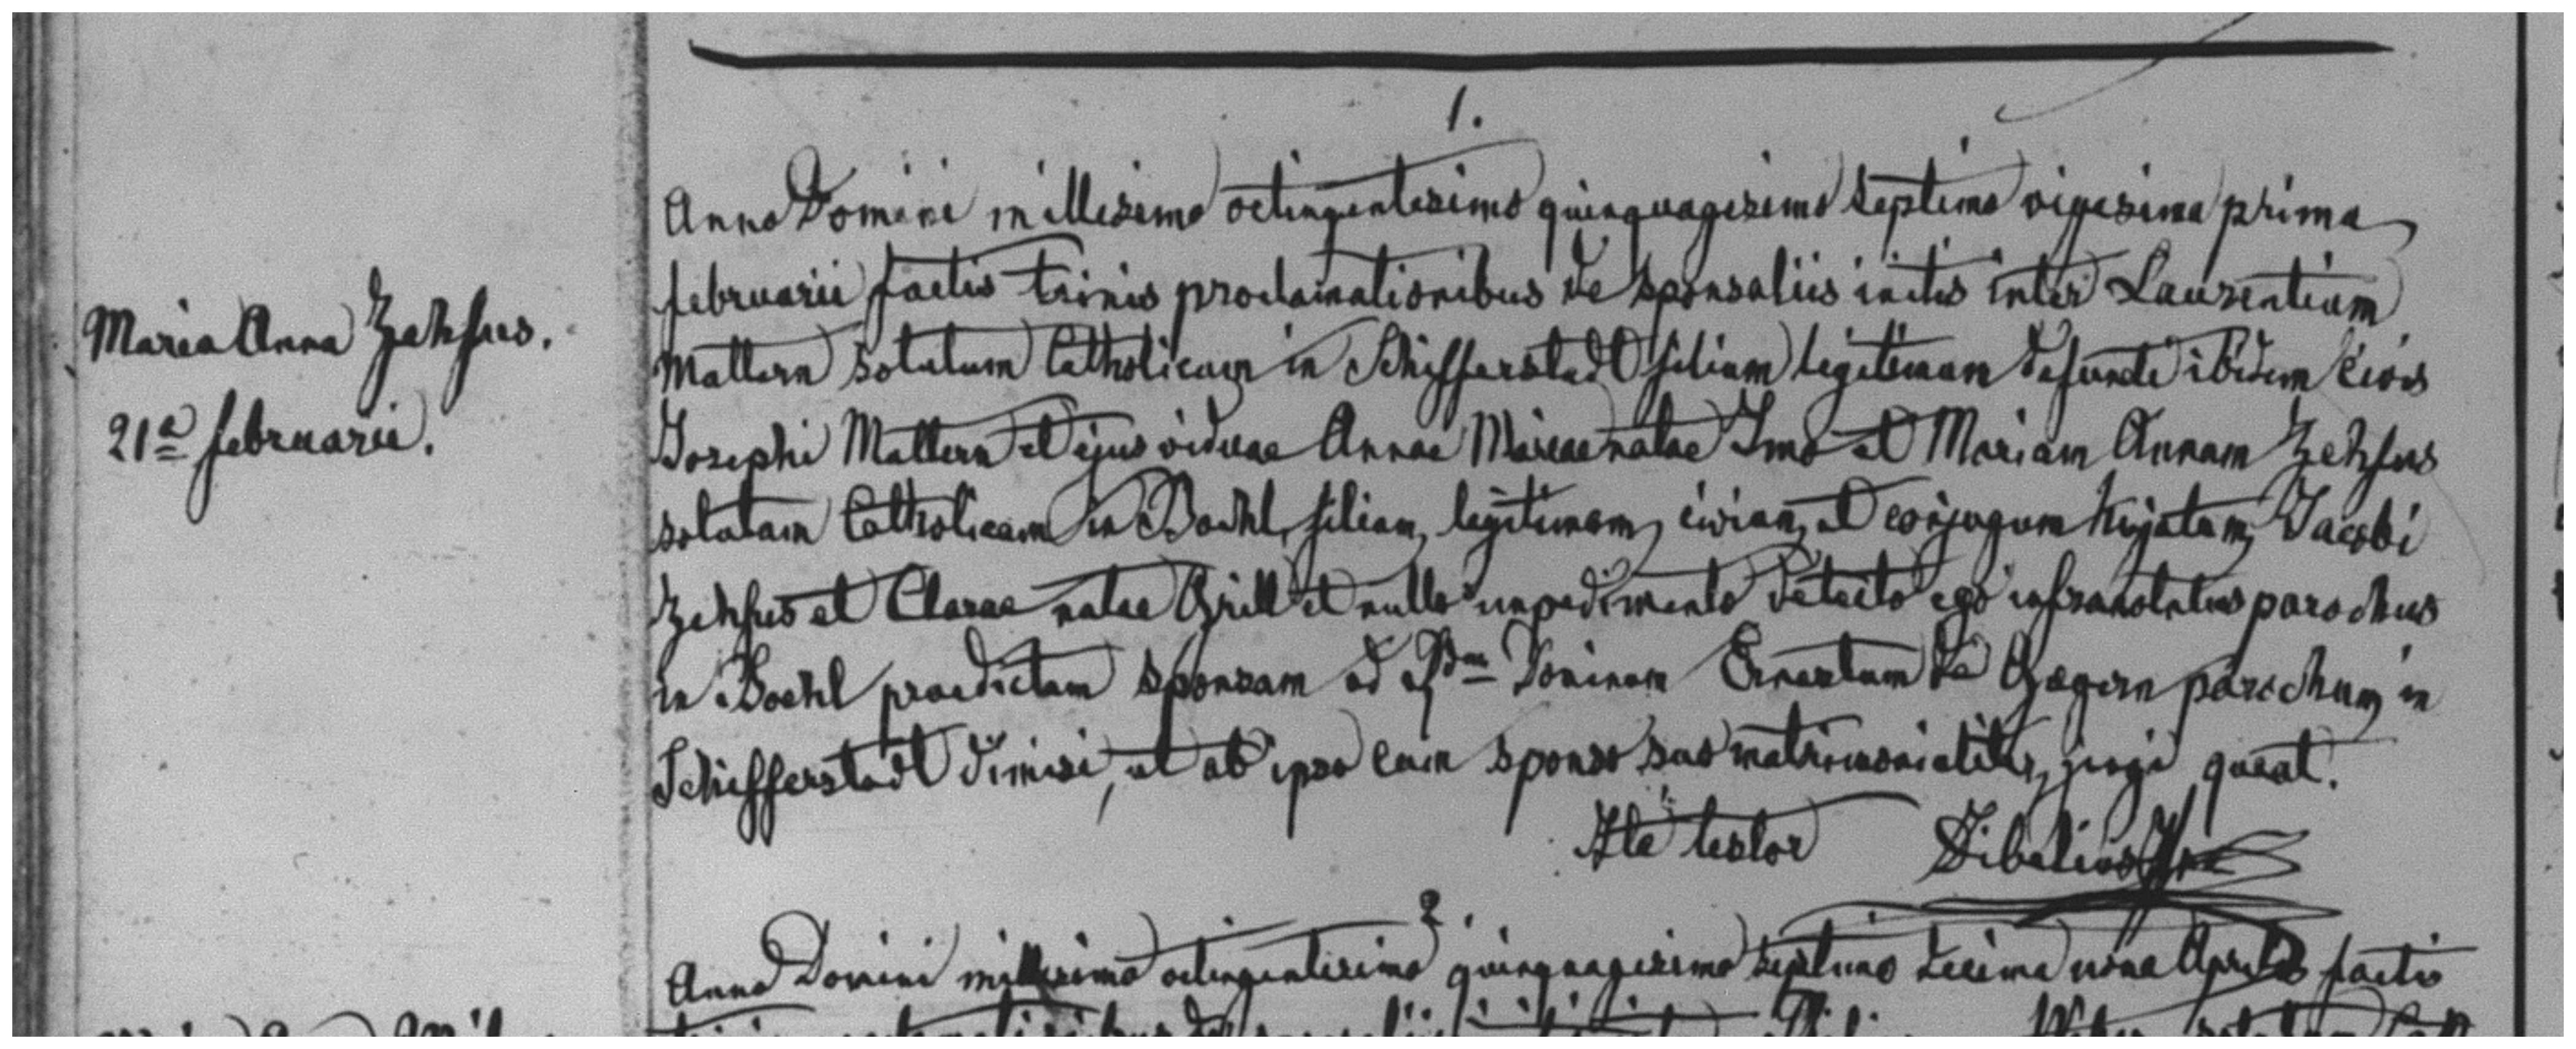 1.
Anno Domini millesimo octingentesimo quinquagesimo septimo vigesima prima
februarii factis trinis proclamationibus de sponsaliis initis inter Laurentium
Mattern solutum Catholicum in Schifferstadt filium legitimum defuncti ibidem civis
Josephi Mattern et ejus viduae Annae Mariae natae Imo et Mariam Annam Zehfus
solutam Catholicam in Boehl, filiam, legitimam, civium, et conjugum hujatum, Jacobi
Zehfus et Clarae natae Grill et nullo impedimento detecto ego infranotatus parochus
in Boehl praedictam sponsam ad Dominum Ernestum de Gagern parochum in
Schifferstadt dimisi, ut ab ipso cum sponso suo matrimonialiter jungi queat.
Ita testor Sibelius
Maria Anna Zehfus.
21a februarii.
2.
Anno Domini millesimo octingentesimo quinquagesimo septimo decima nona Aprilis factis